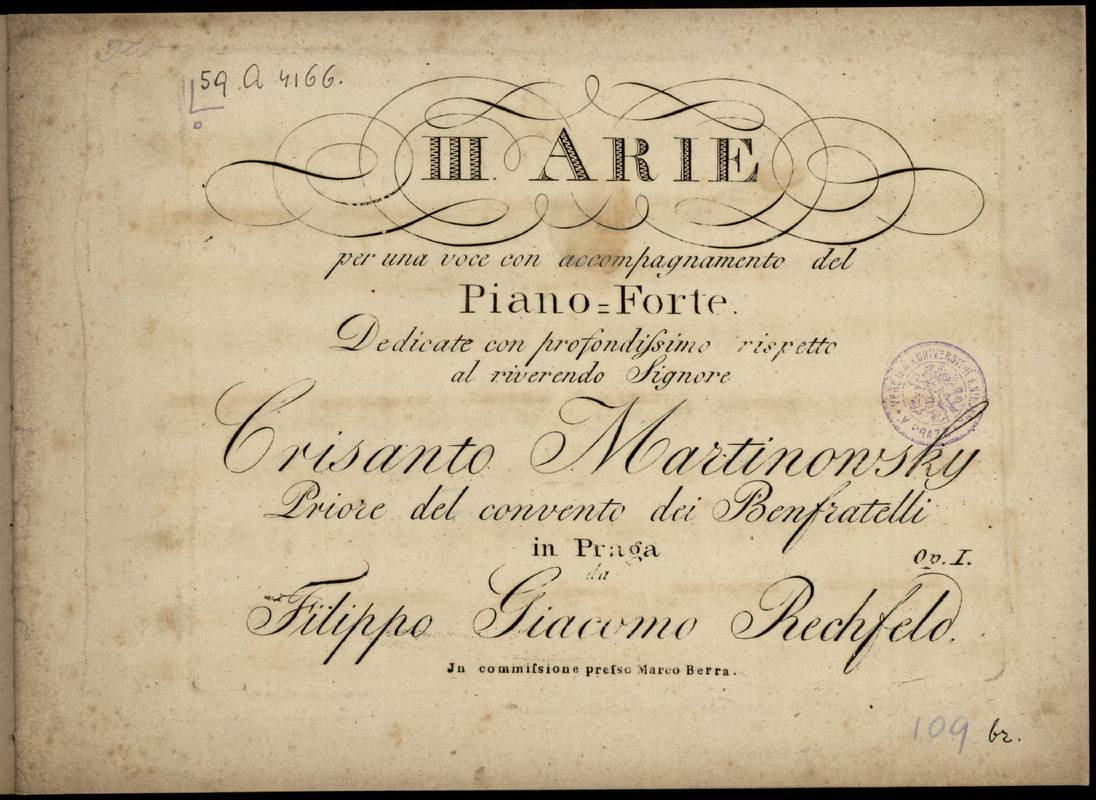 59 A 4166.
III ARIE
per una voce con accompagnamento del
Piano=Forte.
Dedicate con profondissimo rispetto
al riverendo Signore
Crisanto Martinowsky
Priore del convento dei Benfratelli
in Praga
Op. I.
da
Filippo Giacomo Rechfeld.
In commissione presso Marco Berra.
109 br.